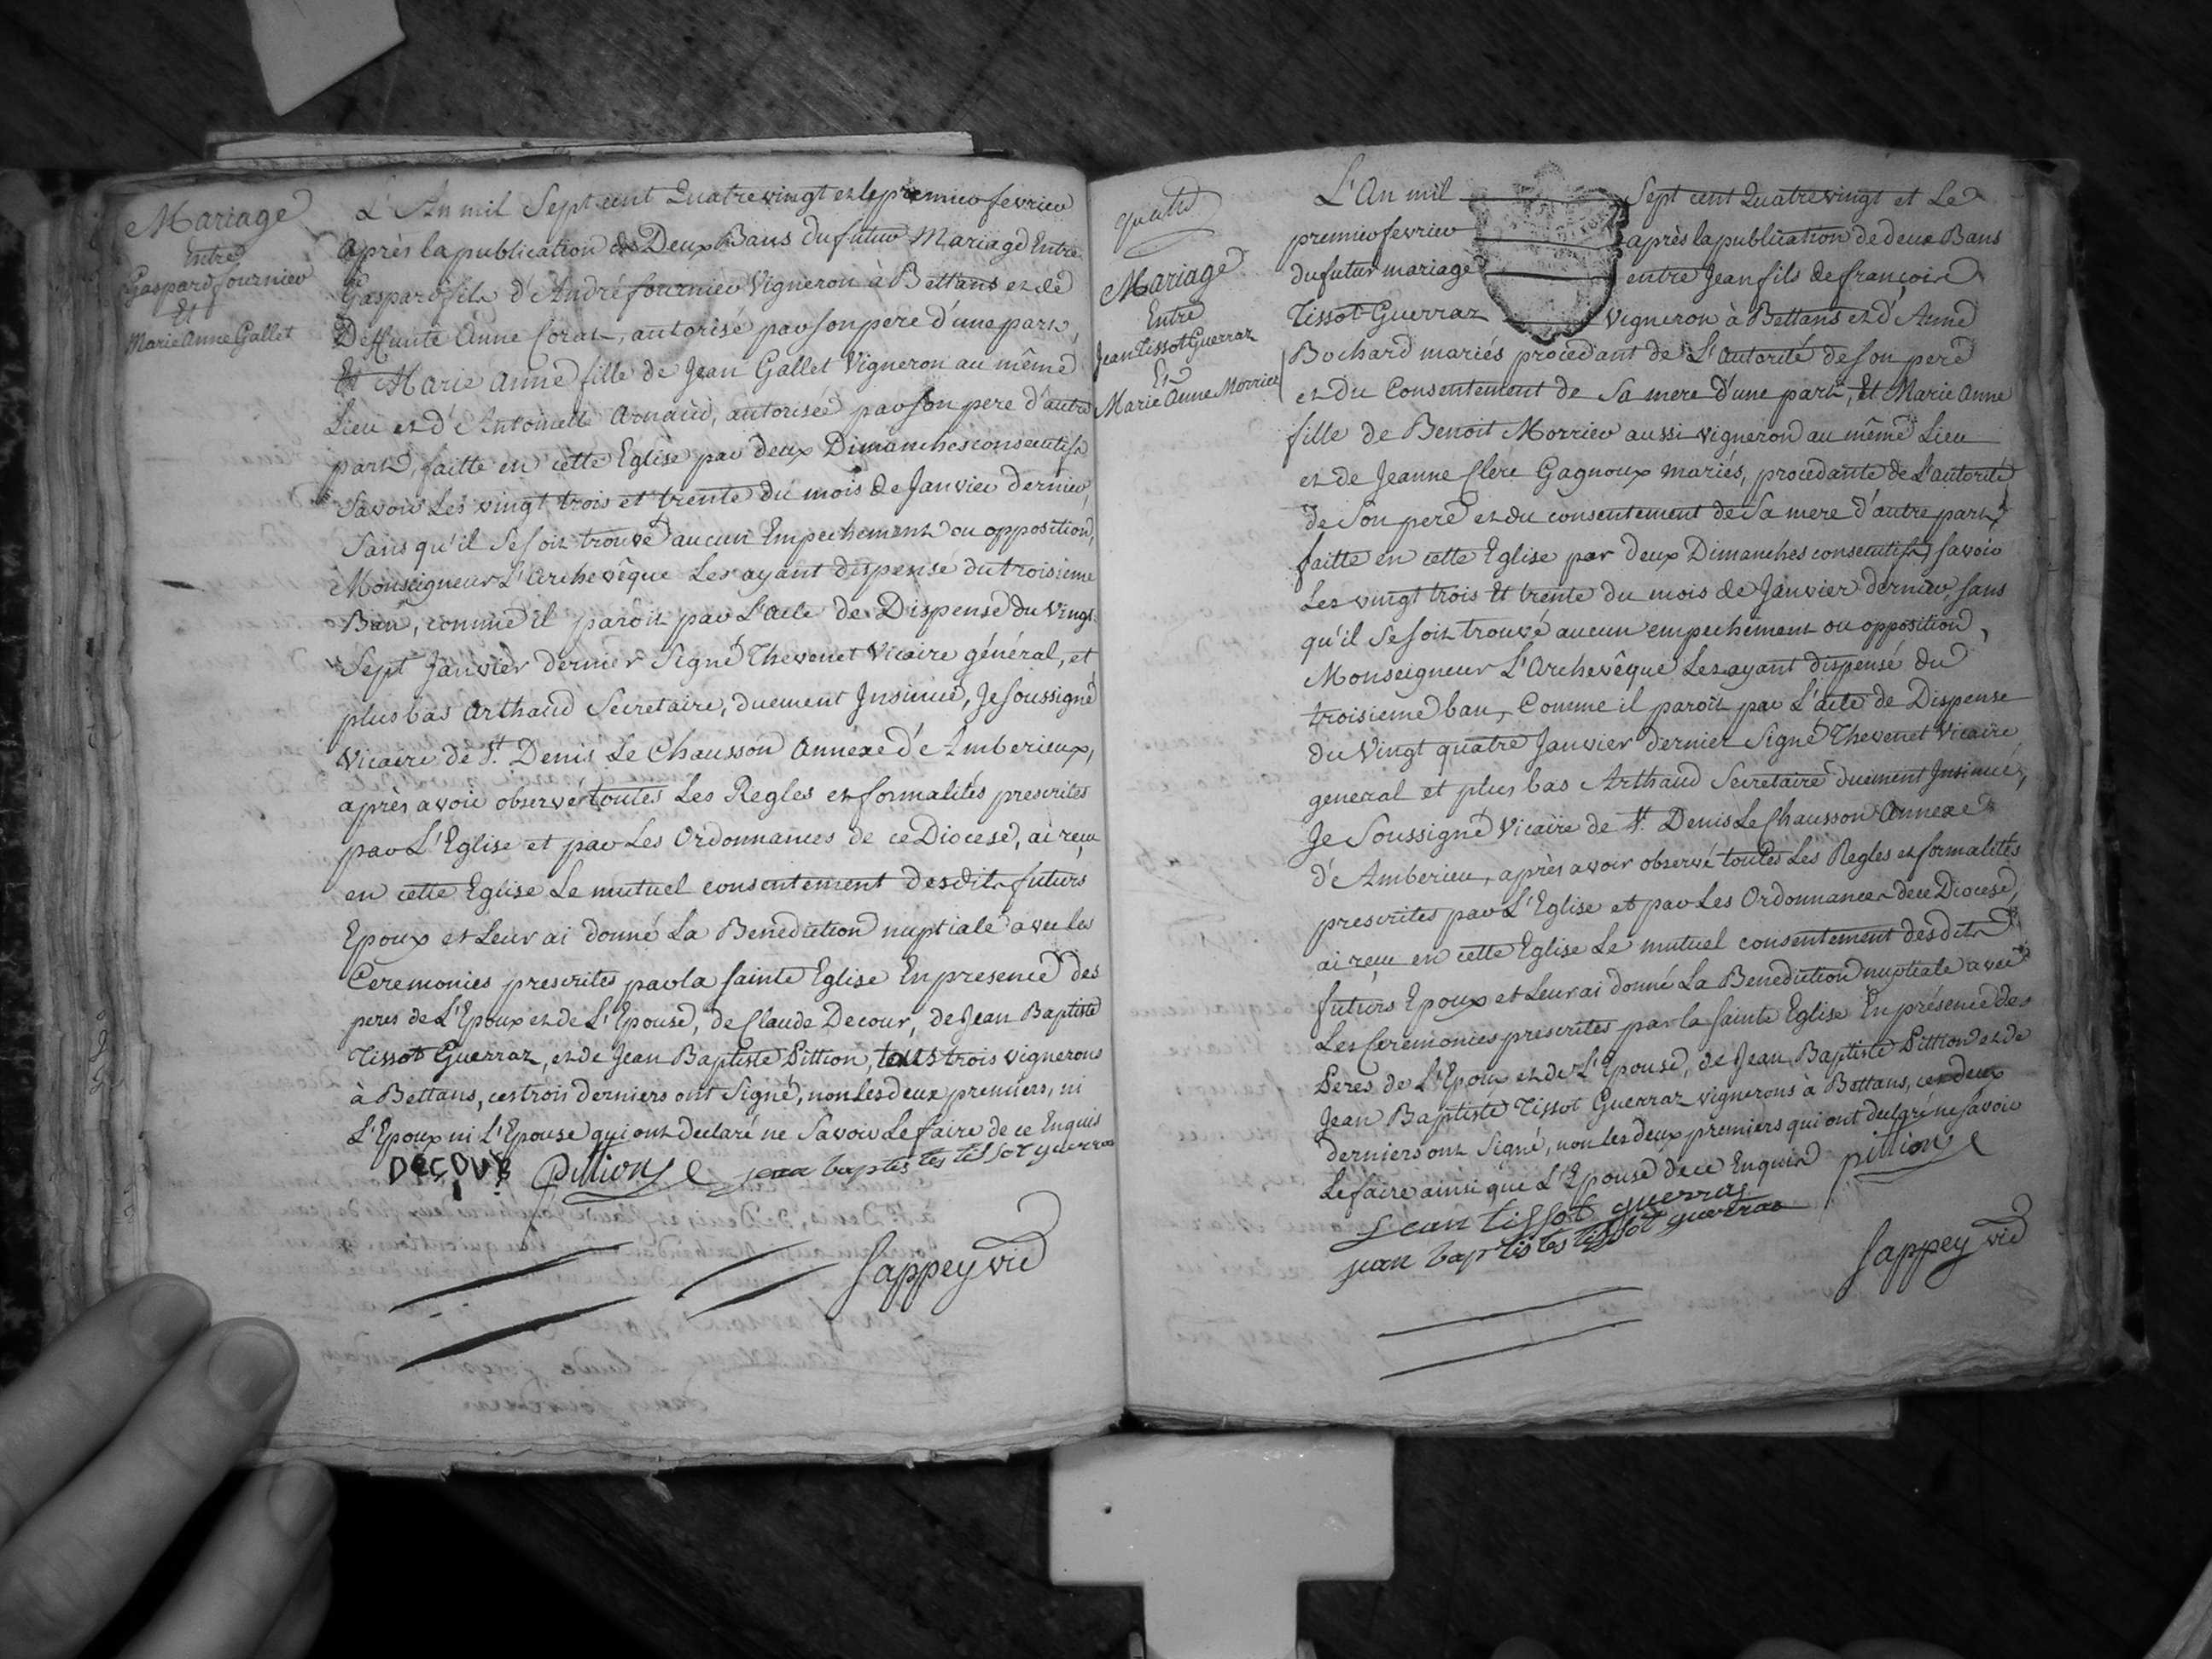 Mariage
Entre
Gaspard fournier
Et
Marie Anne Gallet
L'An mil Sept cent Quatre vingt et le premier fevrier
après la publication de Deux Bans du futur Mariage Entre
Gaspard fils d'André fournier Vigneron à Bettans et de
Deffunte Anne Corat, autorisé par son pere d'une part,
Et Marie Anne fille de Jean Gallet Vigneron au même
Lieu et d'Antoinette Arnaud, autorisée par son pere d'autre
part, faitte en cette Eglise par deux Dimanches consecutifs
Savoir Les vingt trois et trente du mois de Janvier dernier,
Sans qu'il se soit trouvé aucun Empechement ou opposition,
Monseigneur L'Archevêque Les ayant dispensé du troisieme
Ban, comme il paroit par L'acte de Dispense du Vingt
Sept Janvier dernier Signé Thevenet Vicaire général, et
plus bas Arthaud Secretaire, duement Insinué, Je soussigné
Vicaire de St. Denis Le Chausson Annexe d'Amberieux,
après avoir observé toutes Les Regles et formalités prescrites
par L'Eglise et par Les Ordonnances de ce Diocese, ai reçu
en cette Eglise Le mutuel consentement desdits futurs
Epoux et Leur ai donné La Benediction nuptiale avec les
Ceremonies prescrites par la sainte Eglise En presence des
peres de L'Epoux et de L'Epouse, de Claude Decour, de Jean Baptiste
Tissot Guerraz, et de Jean Baptiste Pittion, tous trois vignerons
à Bettans, ces trois derniers ont Signé, non Les deux premiers, ni
L'Epoux ni L'Epouse qui ont declaré ne Savoir Le faire de ce Enquis
DECOUR pittion jean baptistes tissot guerraz
Sappey vic
quatre
Mariage
Entre
Jean Tissot Guerraz
Et
Marie Anne Morrier
L'An mil Sept cent Quatre vingt et Le
premier fevrier après la publication de deux Bans
du futur mariage entre Jean fils de françois
Tissot-Guerraz Vigneron à Bettans et d'Anne
Bochard mariés procedant de L'autorité de son pere
et du Consentement de Sa mere d'une part, Et Marie Anne
fille de Benoit Morrier aussi vigneron au même Lieu
et de Jeanne Clere Gagnoux mariés, procedante de L'autorité
de Son pere et du consentement de Sa mere d'autre part,
faitte en cette Eglise par deux Dimanches consecutifs, savoir
Les vingt trois Et trente du mois de Janvier dernier, sans
qu'il Se soit trouvé aucun empechement ou opposition,
Monseigneur L'Archevêque Les ayant dispensé du
troisieme ban, Comme il paroit par L'acte de Dispense
du Vingt quatre Janvier dernier Signé Thevenet Vicaire
general et plus bas Arthaud Secretaire duement Insinué,
Je Soussigné Vicaire de St. Denis Le Chausson Annexe
d'Amberieu, après avoir observé toutes Les Regles et formalités
prescrites par L'Eglise et par Les Ordonnances de ce Diocese,
ai reçu en cette Eglise Le mutuel consentement desdits
futurs Epoux et Leur ai donné La Benediction nuptiale avec
Les Ceremonies prescrites par la sainte Eglise En présence des
Peres de L'Epoux et de L'Epouse, de Jean Baptiste Pittion et de
Jean Baptiste Tissot Guerraz vignerons à Bettans, ces deux
derniers ont Signé, non les deux premiers qui ont declaré ne savoir
Le faire ainsi que L'Epouse de ce Enquis pittion
Jean tissot guerras
jean baptistes tissot guerras
Sappey vic